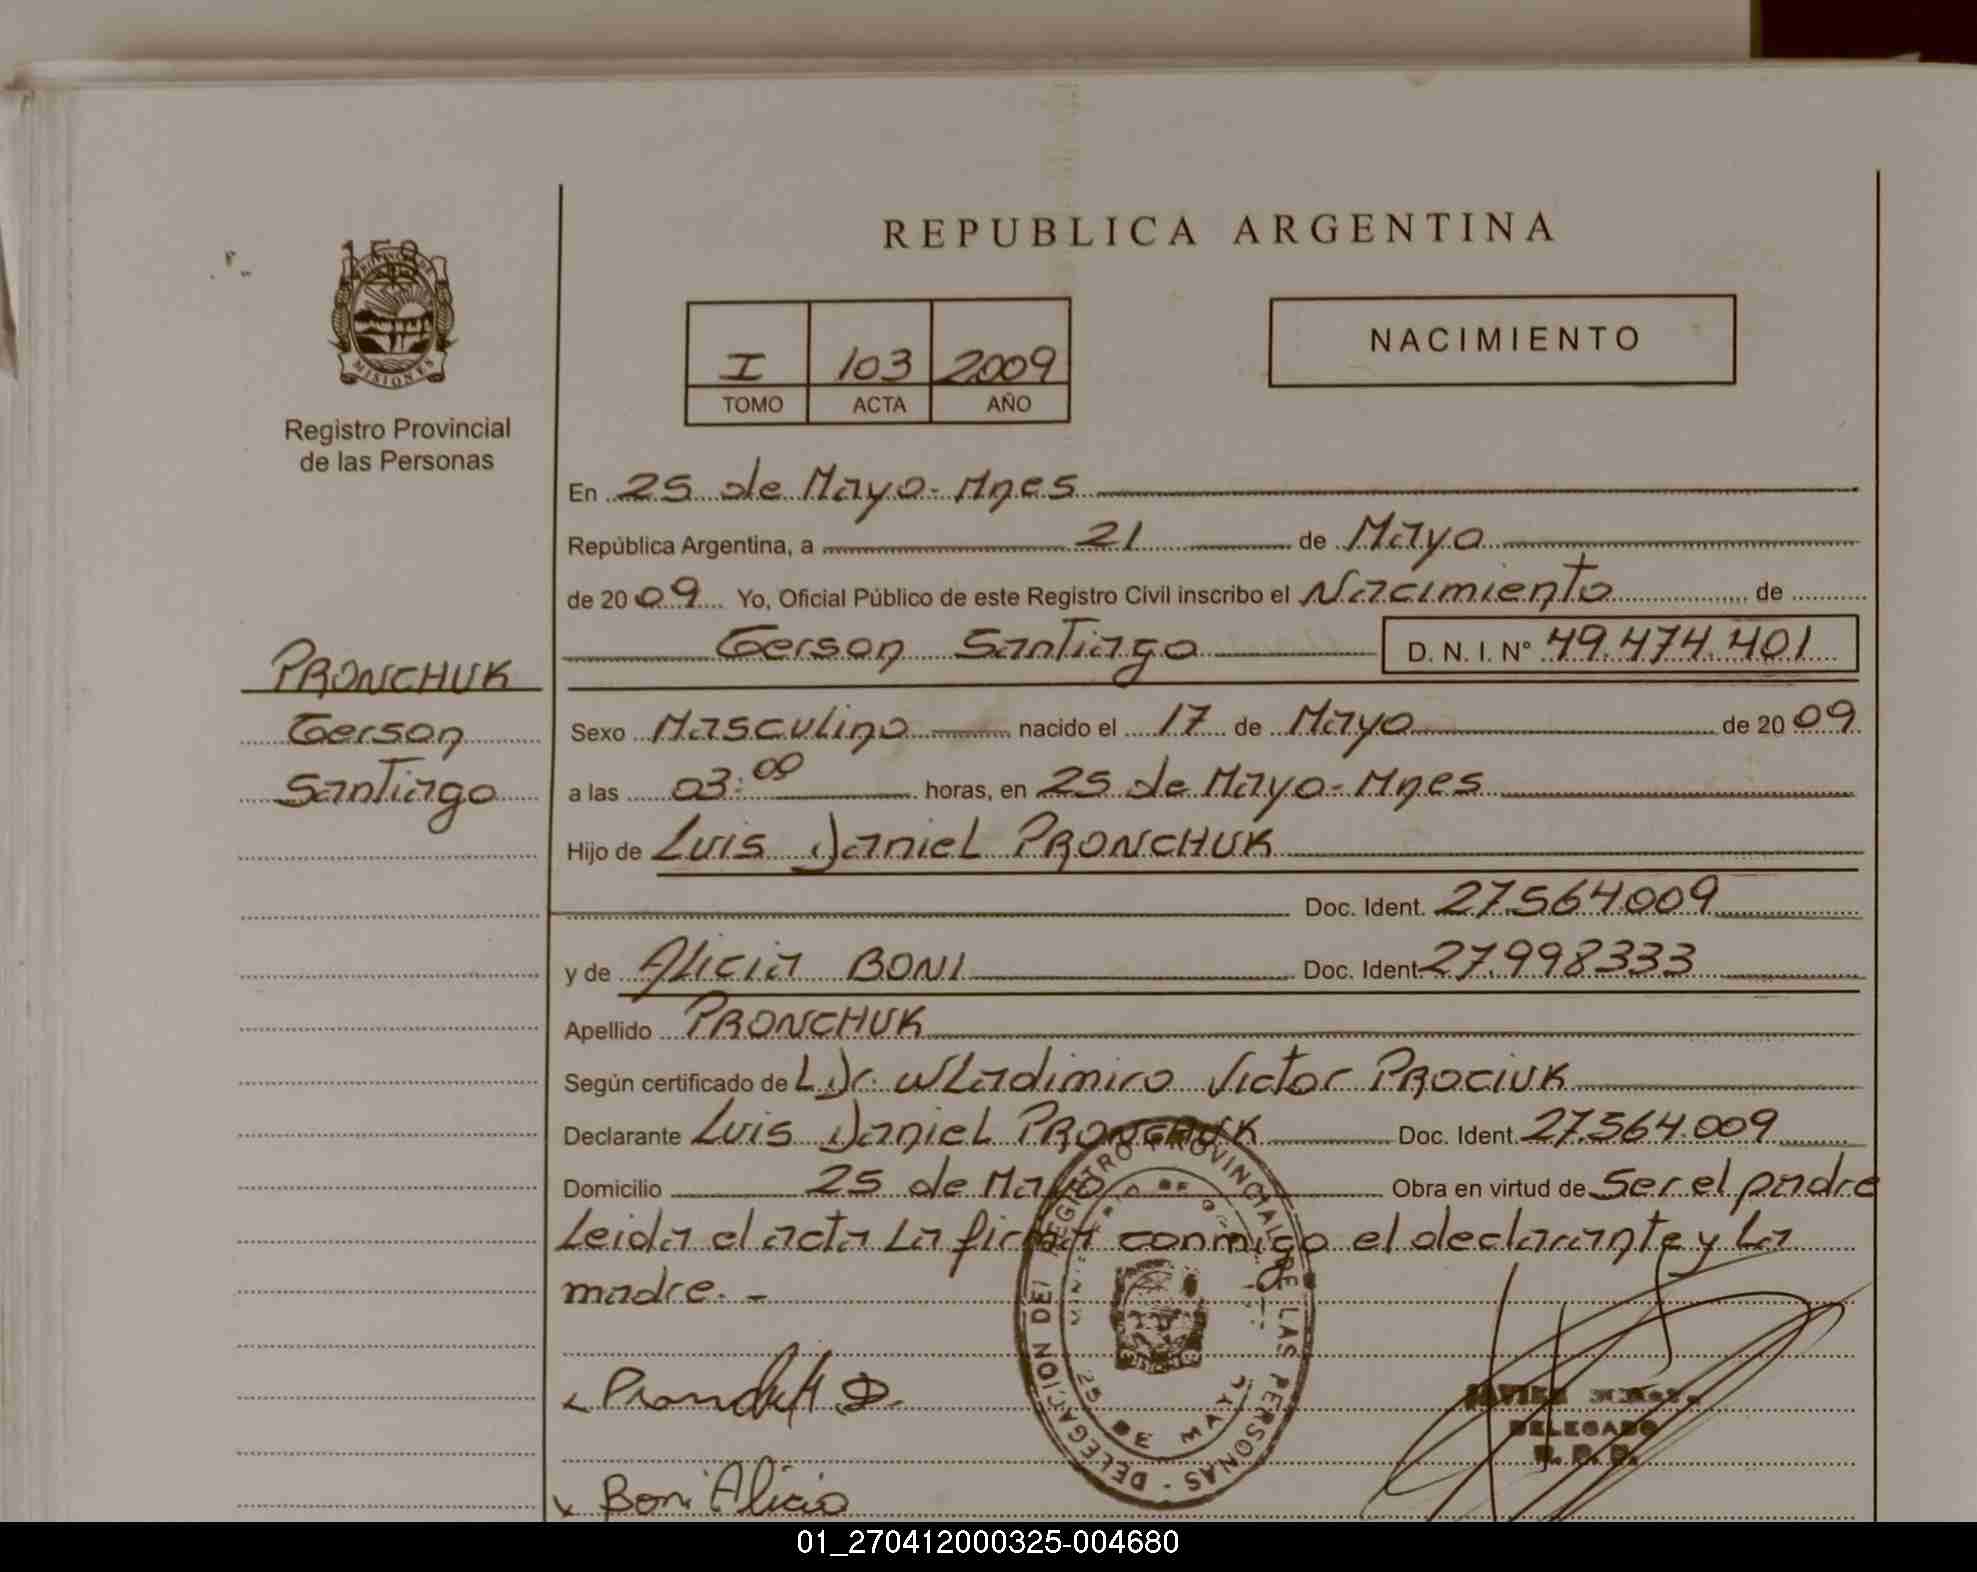 REPUBLICA ARGENTINA
158
PROVINCIA DE
MISIONES
Registro Provincial
de las Personas
I 103 2009
TOMO ACTA AÑO
NACIMIENTO
En 25 de Mayo - Mnes
República Argentina, a 21 de Mayo
de 2009 Yo, Oficial Público de este Registro Civil inscribo el Nacimiento de
Gerson Santiago D. N. I. N° 49.474.401
PRONCHUK
Gerson
Santiago
Sexo Masculino nacido el 17 de Mayo de 2009
a las 03:00 horas, en 25 de Mayo - Mnes
Hijo de Luis Daniel PRONCHUK
Doc. Ident. 27.564.009
y de Alicia BONI Doc. Ident 27.998333
Apellido PRONCHUK
Según certificado de L Dr. Wladimiro Victor PROCIUK
Declarante Luis Daniel PRONCHUK Doc. Ident. 27.564.009
Domicilio 25 de Mayo Obra en virtud de Ser el padre
Leida el acta La firma conmigo el declarante y La
madre. -
DELEGACION DEL REGISTRO PROVINCIAL DE LAS PERSONAS -
25 DE MAYO
Pronchuk D.
DELEGADO
R. P. P.
Boni Alicia
01_270412000325-004680